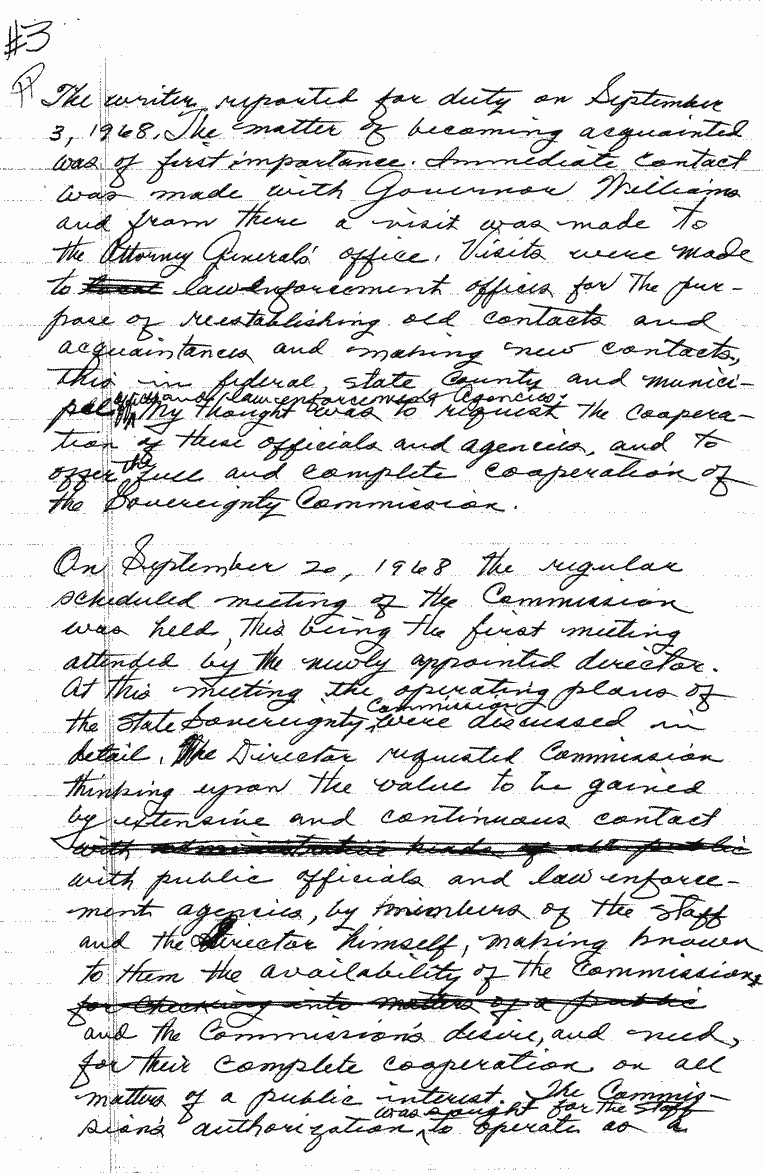 #3
The writer reported for duty on September
3, 1968. The matter of becoming acquainted
was of first importance. Immediate contact
was made with Governor Williams
and from there a visit was made to
the Attorney General's office. Visits were made
to local law enforcement offices for the pur-
pose of reestablishing old contacts and
acquaintances and making new contacts,
this in federal, state County and munici-
pal offices and law enforcement Agencies. My thought was to request the coopera-
tion of these officials and agencies, and to
offer the full and complete cooperation of
the Sovereignty Commission.
On September 20, 1968 the regular
scheduled meeting of the Commission
was held, this being the first meeting
attended by the newly appointed director.
At this meeting the operating plans of
the State Sovereignty Commission were discussed in
detail. The Director requested Commission
thinking upon the value to be gained
by extensive and continuous contact
with administrative heads of all public
with public officials and law enforce-
ment agencies, by members of the staff
and the Director himself, making known
to them the availability of the Commission,
for checking into matters of a public
and the Commission's desire, and need,
for their complete cooperation on all
matters of a public interest. The Commis-
sion's authorization was sought for the staff to operate as a